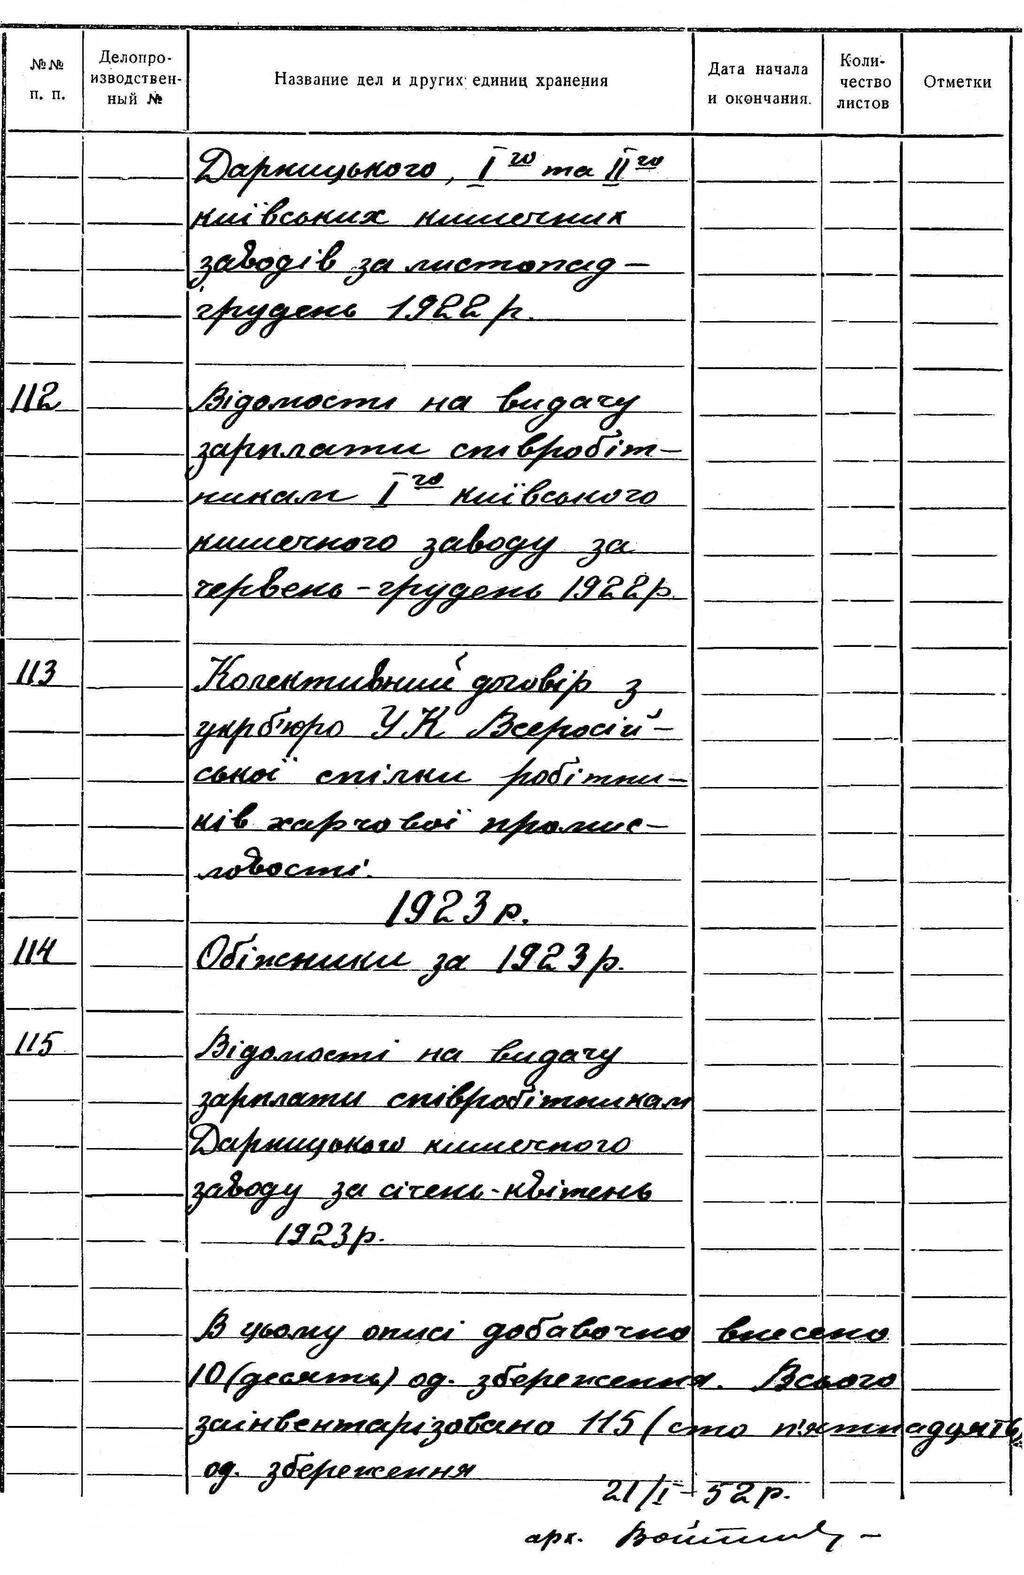 №№ п. п.
Делопро-изводствен-ный №
Название дел и других единиц хранения
Дата начала и окончания.
Коли-чество листов
Отметки
Дарницького, I го та II го
київських кишечних
заводів за листопад –
грудень 1922 р.
112 Відомости на видачу
зарплати співробіт–
никам I го київського
кишечного заводу за
червень – грудень 1922 р.
113 Колективний договір з
укрбюро УК Всеросій–
ської спілки робітни–
ків харчової промис–
ловості.
1923 р.
114 Обіжники за 1923 р.
115 Відомості на видачу
зарплати співробітникам
Дарницького кишечного
заводу за січень-квітень
1923 р.
В цьому описі добавочно внесено
10 (десять) од. збереження. Всього
заінвентарізовано 115 (сто п'ятнадцять)
од. збереження
21/I – 52 р.
арх.